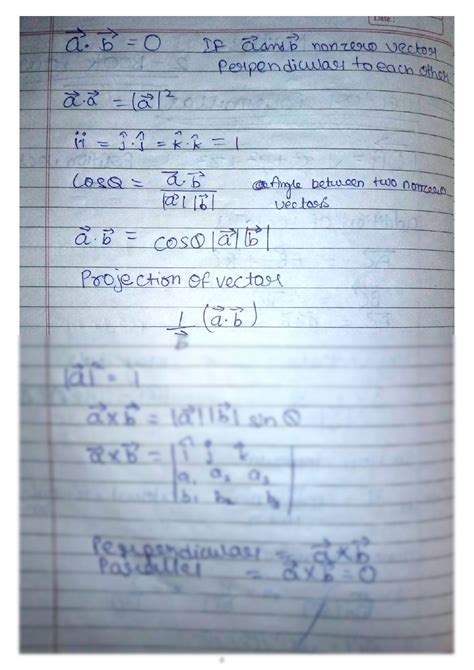 Date :
a⃗ · b⃗ = 0 If a⃗ and b⃗ nonzero vector
Perpendicular to each other
a⃗ · a⃗ = |a⃗|²
î·î = ĵ·ĵ = k̂·k̂ = 1
Cosθ = a⃗·b⃗ / |a⃗| |b⃗| Angle between two nonzero
vectors
a⃗ · b⃗ = cosθ |a⃗| |b⃗|
Projection of vector
1/b⃗ (a⃗·b⃗)
|a⃗| = 1
a⃗ × b⃗ = |a⃗| |b⃗| sin θ
a⃗ × b⃗ = | î j
a₁ a₂ a₃
b₁ b₂ b₃ |
Perpendicular = a⃗ × b⃗
Parallel = a⃗ × b⃗ = 0